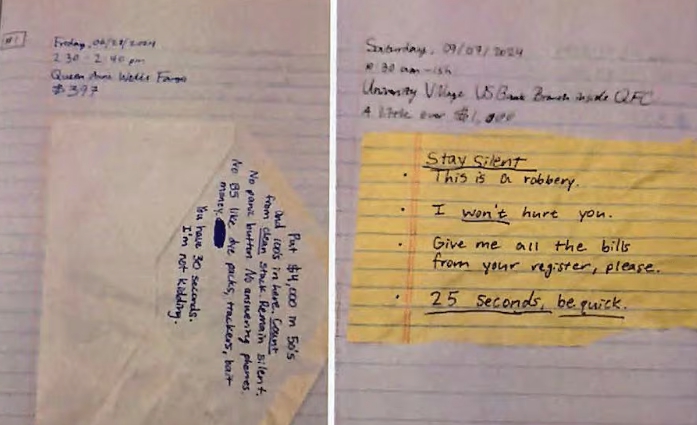 #1
Friday, 06/21/2024
2:30 - 2:40 pm
Queen Anne Wells Fargo
$397
Put $4,000 in 50's
and 100's in here. Count
from clean stack. Remain silent.
No panic button. No answering phones.
No BS like dye packs, trackers, bait
money.
You have 30 seconds.
I'm not kidding.
Saturday, 09/07/2024
30 am-ish
University Village US Bank Branch inside QFC
A little over $1,000
Stay Silent
• This is a robbery.
• I won't hurt you.
• Give me all the bills
from your register, please.
• 25 seconds, be quick.